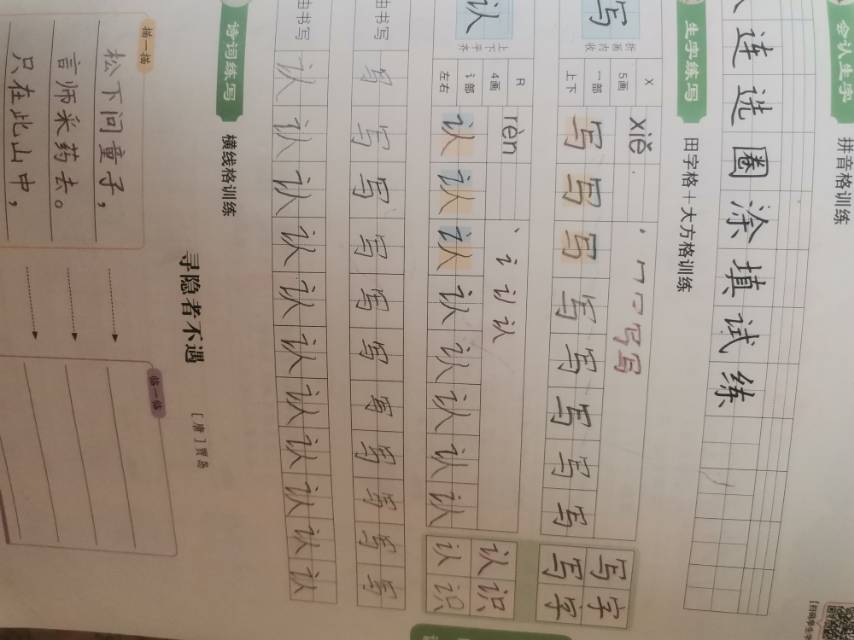 会认生字 拼音格训练
连选圈涂填试练
生字练写 田字格+大方格训练
写
折画内收
X 5画 一部 上下
xiě
写写写写写写写写
写字
写字
认
上下平齐
R 4画 讠部 左右
rèn
认认认认认认认认
认识
认识
由书写
写写写写写写写写写写写
由书写
认认认认认认认认认认认
诗词练写 横线格训练
寻隐者不遇
[唐]贾岛
描一描
临一临
松下问童子，
言师采药去。
只在此山中，